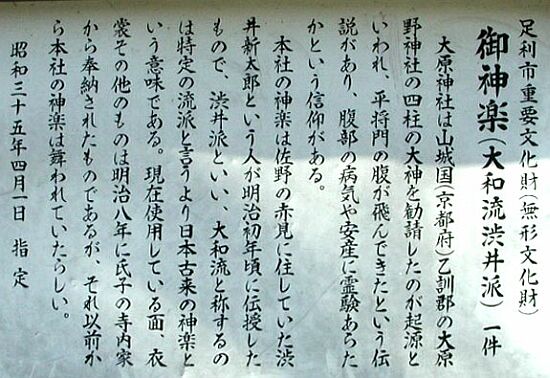 足利市重要文化財(無形文化財)
御神楽(大和流渋井派) 一件
大原神社は山城国(京都府)乙訓郡の大原
野神社の四柱の大神を勧請したのが起源と
いわれ、平将門の腹が飛んできたという伝
説があり、腹部の病気や安産に霊験あらた
かという信仰がある。
本社の神楽は佐野の赤見に住していた渋
井新太郎という人が明治初年頃に伝授した
もので、渋井派といい、大和流と称するの
は特定の流派と言うより日本古来の神楽と
いう意味である。現在使用している面、衣
裳その他のものは明治八年に氏子の寺内家
から奉納されたものであるが、それ以前か
ら本社の神楽は舞われていたらしい。
昭和三十五年四月一日 指定